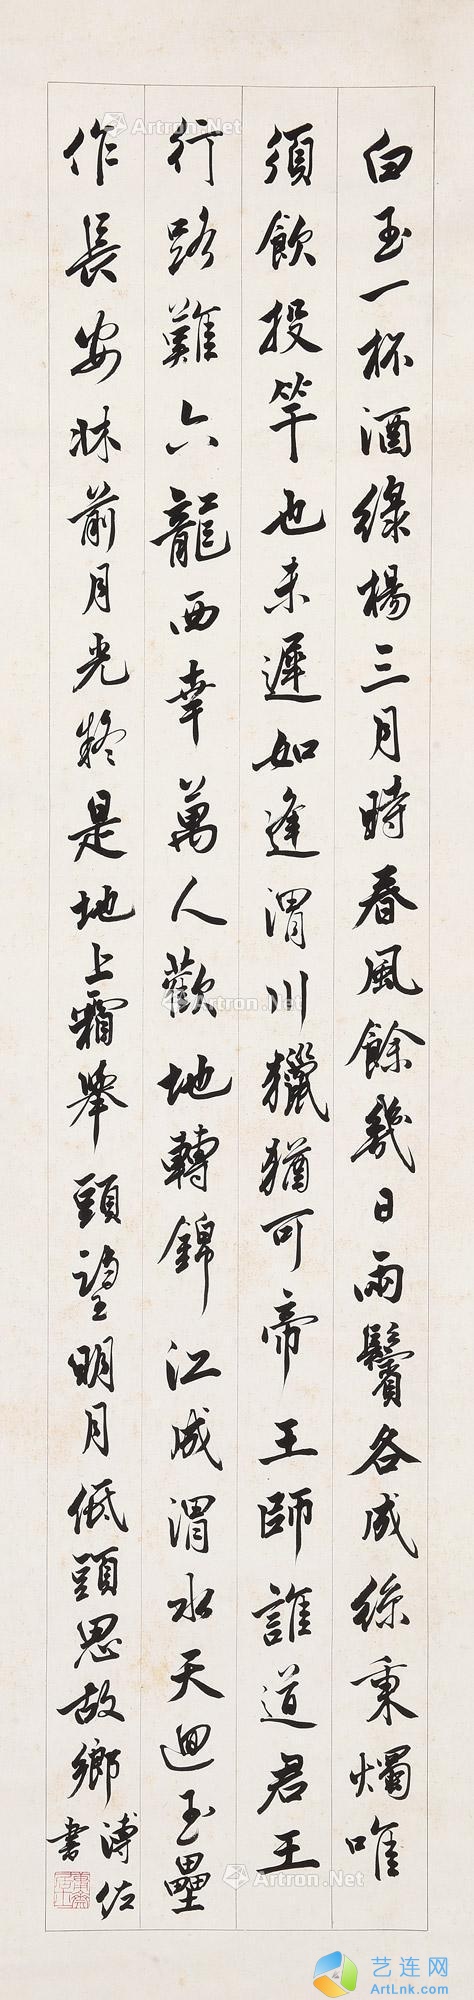 白玉一杯酒綠楊三月時春風餘幾日兩鬢各成絲秉燭唯
須飲投竿也未遲如逢渭川獵猶可帝王師誰道君王
行路難六龍西幸萬人歡地轉錦江成渭水天迴玉壘
作長安牀前月光疑是地上霜舉頭望明月低頭思故鄉
溥佐
書
Artron.Net
Artron.Net
Artron.Net
Artron.Net
艺连网
ArtLnk.com